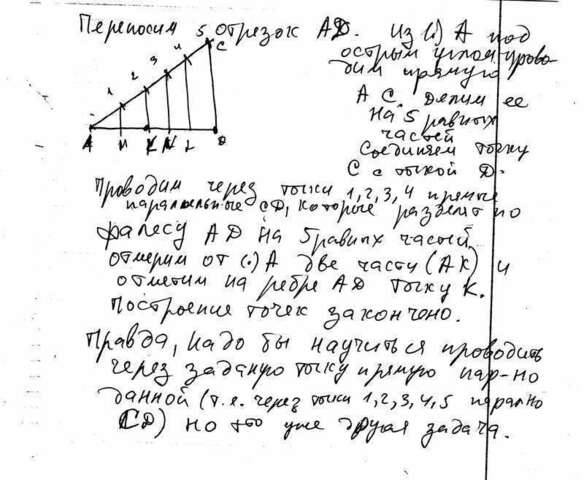 Переносим отрезок АД. Из (.) А под
острым углом прово-
дим прямую
АС. Делим ее
на 5 равных
частей
Соединяем точку
С с точкой D.
1 2 3 4 5 C
A M K N L D
Проводим через точки 1,2,3,4 прямые
параллельные СD, которые разделят по
фалесу АD на 5 равных частей
отмерим от (.) А две части (АК) и
отметим на ребре АD точку К.
Построение точек закончено.
Правда, надо бы научиться проводить
через заданную точку прямую пар-но
данной (т.е. через точки 1,2,3,4,5
СD) но это уже другая задача.